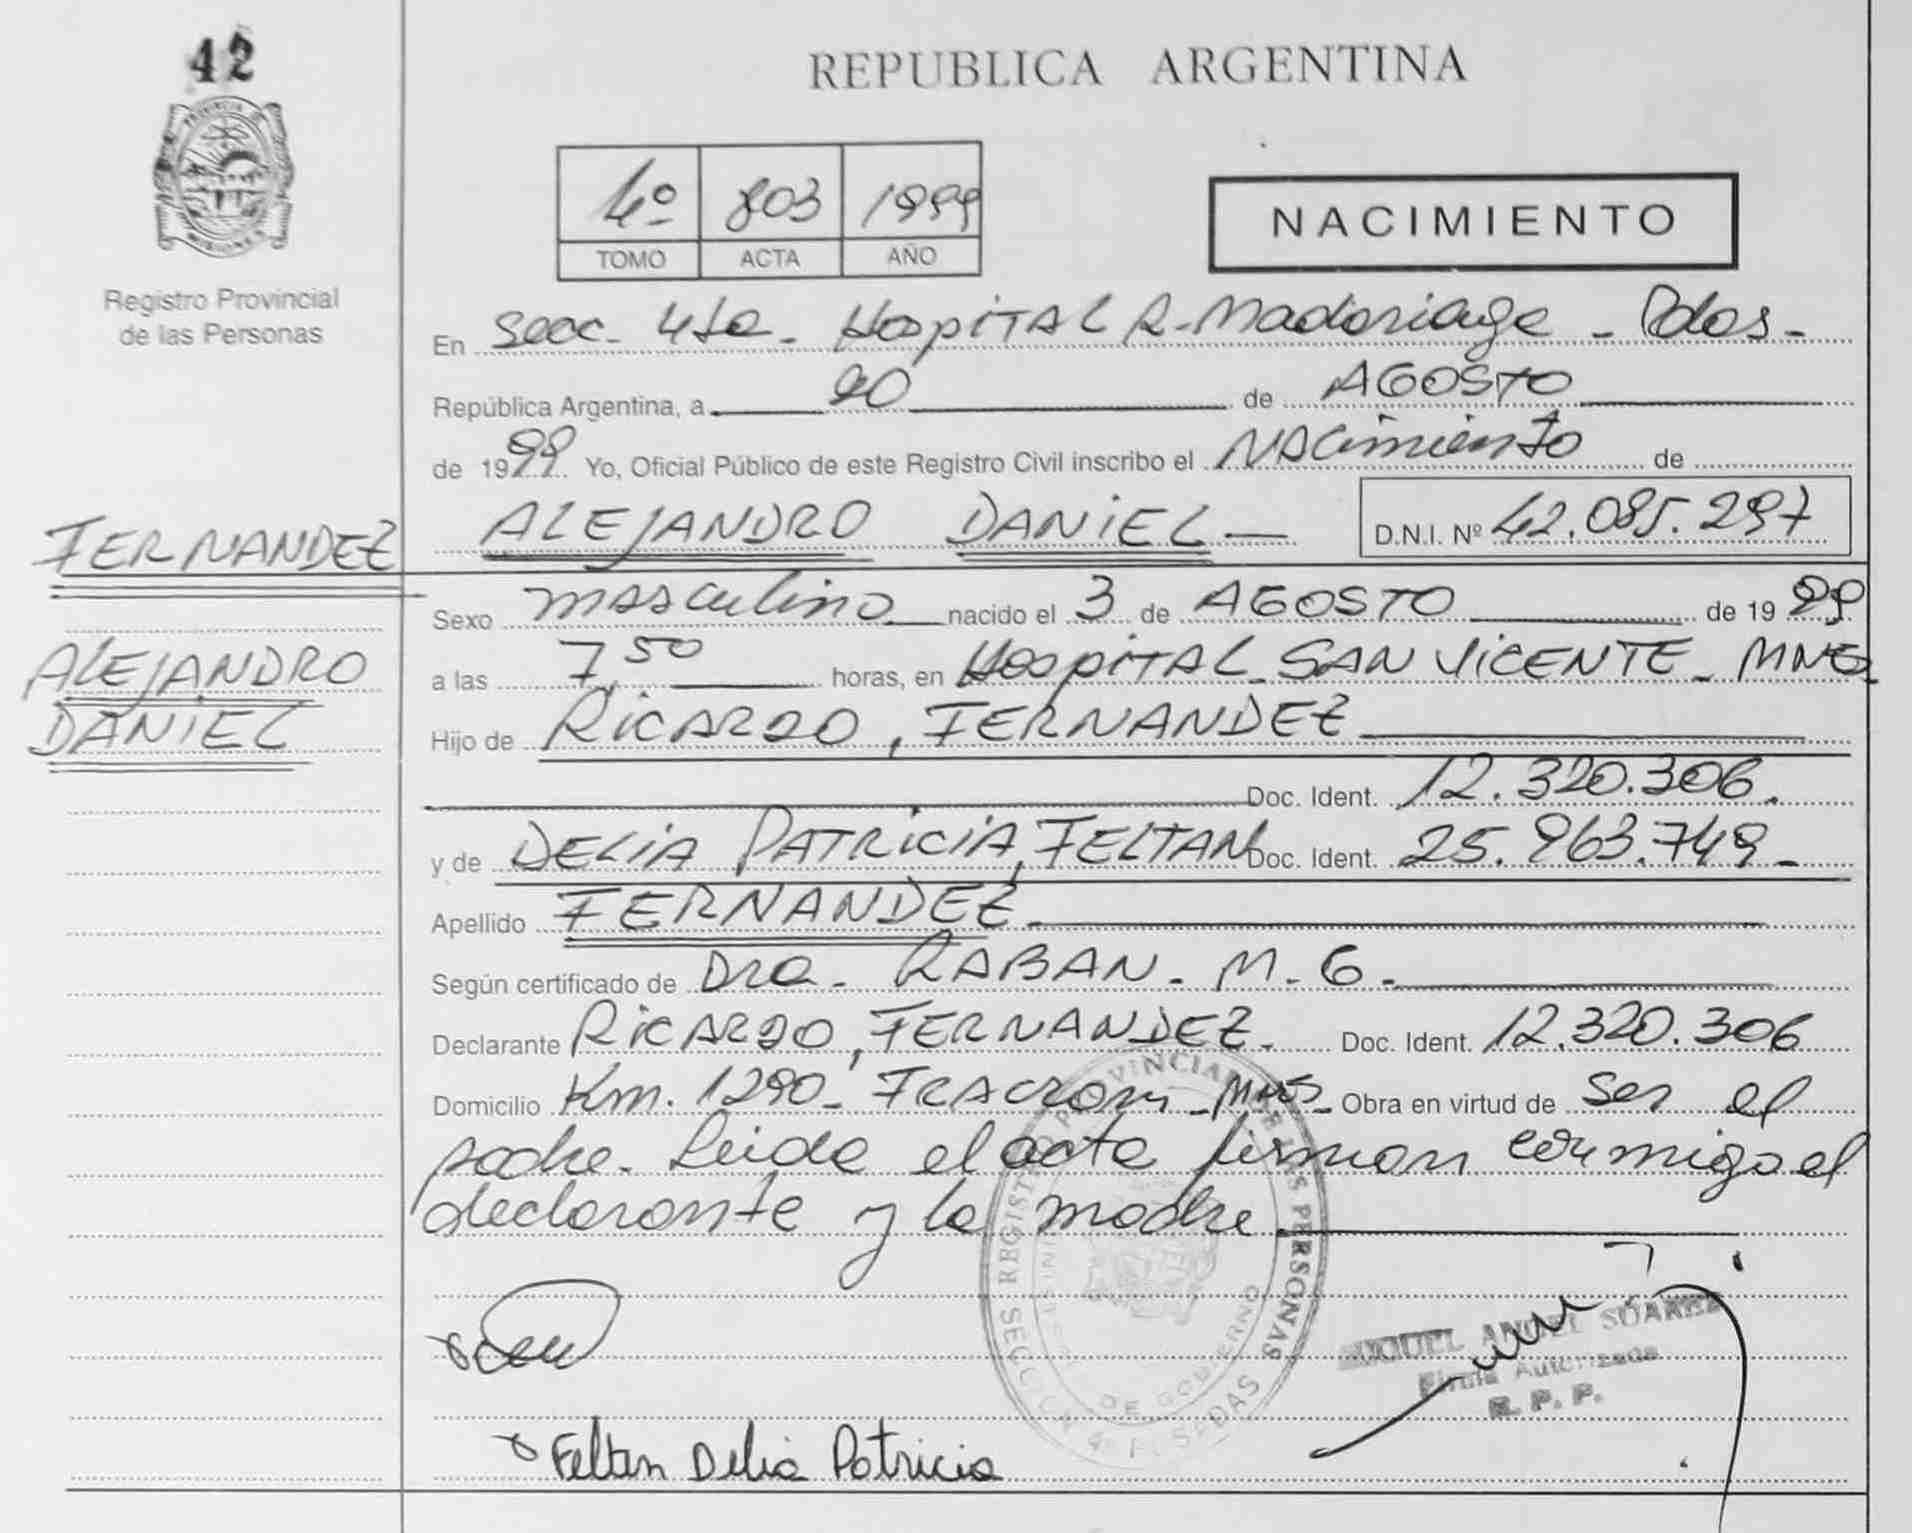 42
PROVINCIA DE
MISIONES
Registro Provincial
de las Personas
REPUBLICA ARGENTINA
4º 803 1999
TOMO ACTA AÑO
NACIMIENTO
En Secc. 4ta. Hospital R. Madariaga - Pdas -
República Argentina, a 20 de AGOSTO
de 1999 Yo, Oficial Público de este Registro Civil inscribo el NAcimiento de
FERNANDEZ ALEJANDRO DANIEL D.N.I. Nº 42.085.297
Sexo masculino nacido el 3 de AGOSTO de 1999
ALEJANDRO
a las 7,50 horas, en Hospital SAN VICENTE - MNES
DANIEL
Hijo de RICARDO, FERNANDEZ
Doc. Ident. 12.320.306.
y de DELIA PATRICIA, FELTAN Doc. Ident. 25.963.749 -
Apellido FERNANDEZ.
Según certificado de Dra. RABAN. M. G.
Declarante RICARDO, FERNANDEZ. Doc. Ident. 12.320.306
Domicilio Km. 1290 - FRACRAN - MNES - Obra en virtud de ser el
padre. Leida el acta firman conmigo el
declarante y la madre.
REGISTRO PROVINCIAL DE LAS PERSONAS
DE GOBIERNO
SECCION 4ª POSADAS
MIGUEL ANGEL SUAREZ
Firma Autorizada
R. P. P.
Feltan Delia Patricia